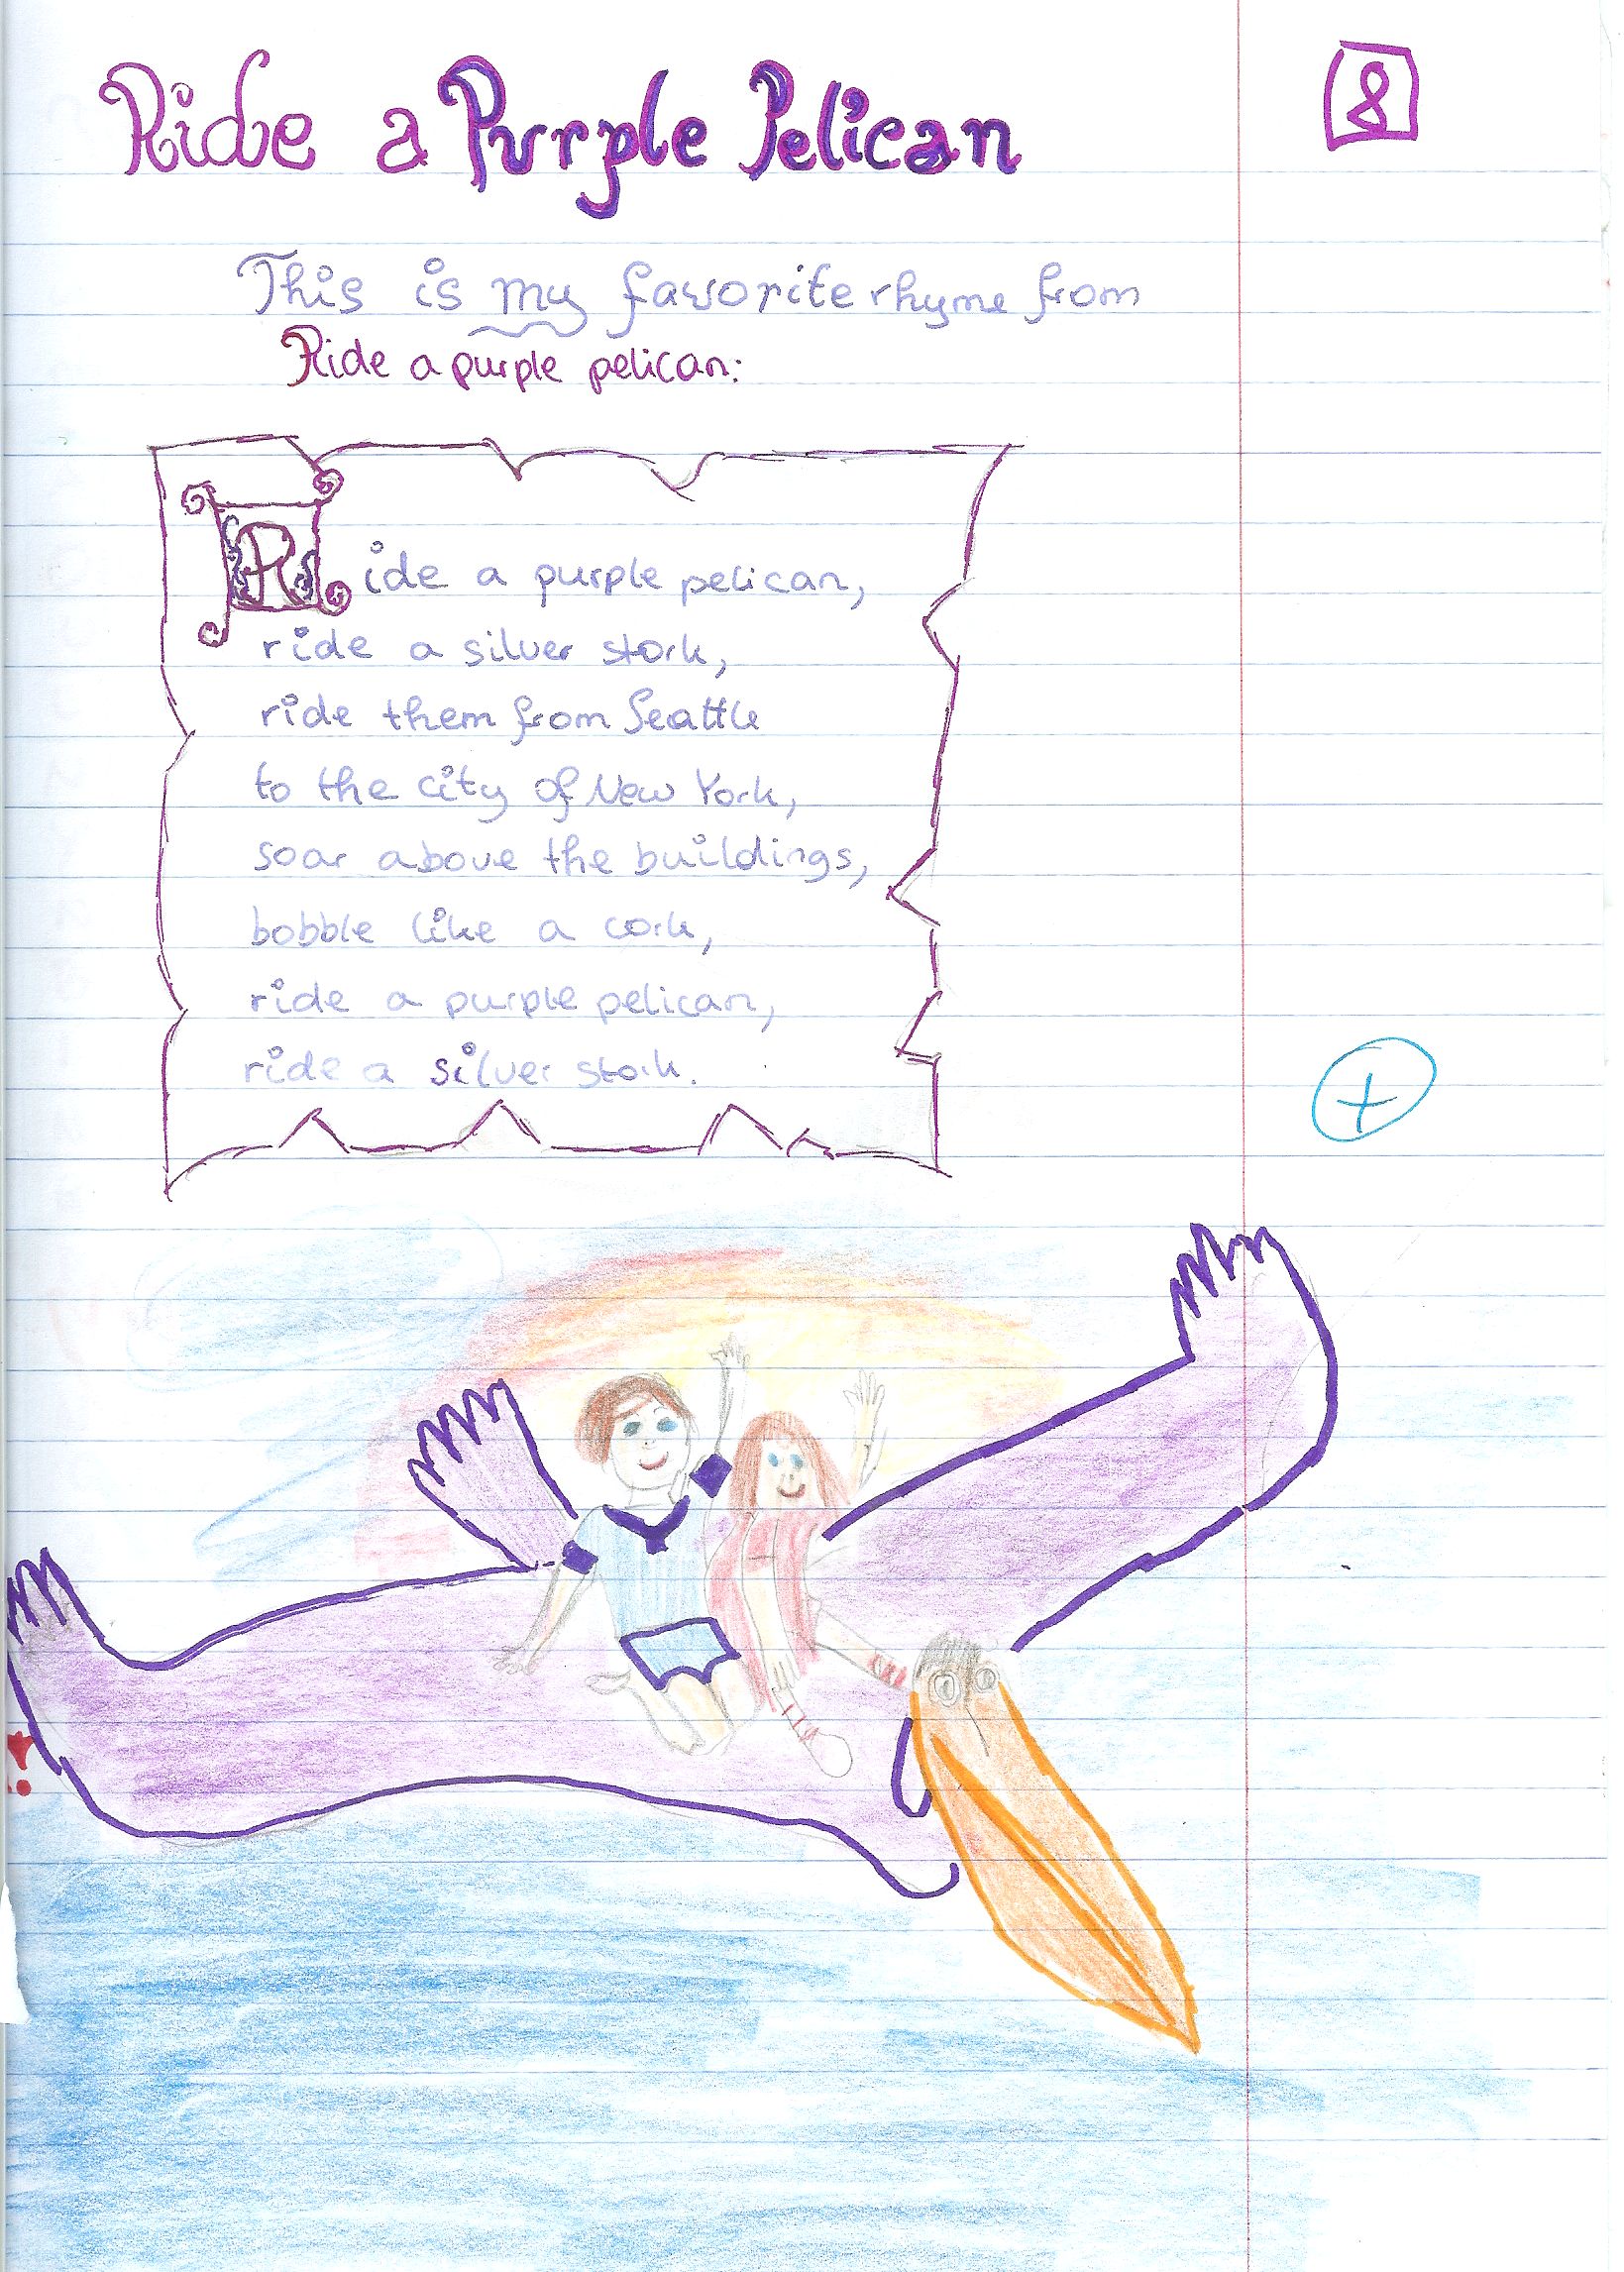 Ride a Purple Pelican
8
This is my favorite rhyme from
Ride a purple pelican:
Ride a purple pelican,
ride a silver stork,
ride them from Seattle
to the city of New York,
soar above the buildings,
bobble like a cork,
ride a purple pelican,
ride a silver stork.
+